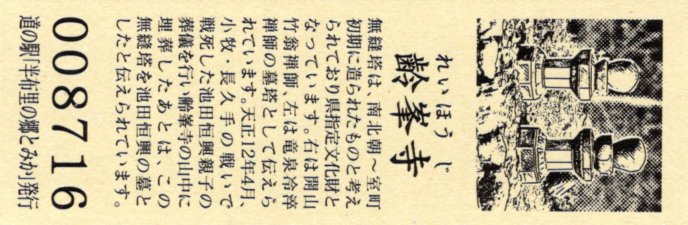 れいほうじ
齢峯寺
無縫塔は、南北朝～室町
初期に造られたものと考え
られており県指定文化財と
なっています。右は開山
竹翁禅師、左は竜泉冷淬
禅師の墓塔として伝えら
れています。天正12年4月、
小牧・長久手の戦いで
戦死した池田恒興親子の
葬儀を行い齢峯寺の山中に
埋葬したあとは、この
無縫塔を池田恒興の墓と
したと伝えられています。
008716
道の駅「半布里の郷とみか」発行